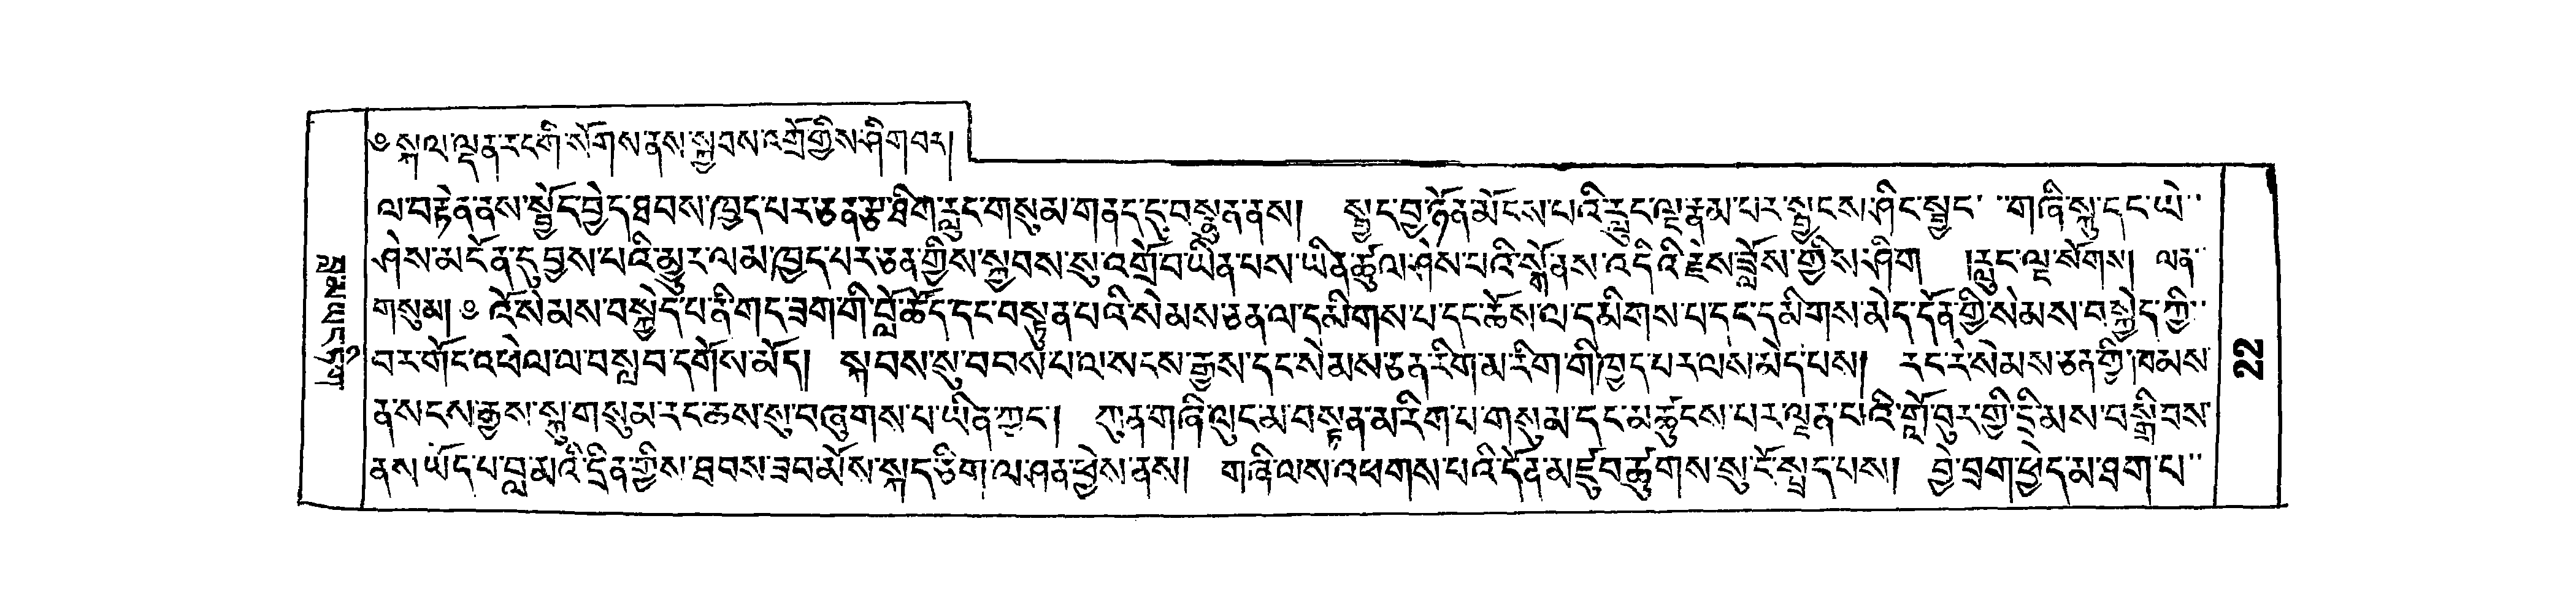 ༄ སྐལ་ལྡན་རངགི་སོགས་ནས་སྐྱབས་འགྲོ་གྱིས་ཤིགབར།
ལ་བརྟེན་ནས་སྦྱོད་བྱེད་ཐབས་ཁྱད་པར་ཅན་རྩ་ཐིག་རླུང་གསུམ་གནད་དུ་བསྟུན་ནས། སྦྱང་བྱ་ཉོན་མོངས་པའི་རླུང་ལྔ་རྣམ་པར་སྦྱངས་ཤིང་སྦྱང་གཞི་སྐུ་དང་ཡེ་
ཤེས་མངོན་དུ་བྱས་པའི་མྱུར་ལམ་ཁྱད་པར་ཅན་གྱིས་སྐྱབས་སུ་འགྲོ་བ་ཡིན་པས་ཡིན་ཚུལ་ཤེས་པའི་སྒོ་ནས་འདིའི་རྗེས་ཟློས་གྱིས་ཤིག །རླུང་ལྔ་སོགས། ལན་
གསུམ། ༄ འོ་སེམས་བསྐྱེད་པ་ནི་གང་ཟག་གི་བློ་ཚོད་དང་བསྟུན་པའི་སེམས་ཅན་ལ་དམིགས་པ་དང་ཆོས་ལ་དམིགས་པ་དང་དམིགས་མེད་དོན་གྱི་སེམས་བསྐྱེད་ཀྱི་
བར་གོང་འཕེལ་ལ་བསླབ་དགོས་མོད། སྐབས་སུ་བབས་པ་ལ་སངས་རྒྱས་དང་སེམས་ཅན་རིག་མ་རིག་གི་ཁྱད་པར་ལས་མེད་པས། རང་རེ་སེམས་ཅན་གྱི་ཁམས་
ན་སངས་རྒྱས་སྐུ་གསུམ་རང་ཆས་སུ་བཞུགས་པ་ཡིན་ཀྱང་། ཀུན་གཞི་ལུང་མ་བསྟན་མ་རིག་པ་གསུམ་དང་མཚུངས་པར་ལྡན་པའི་གློ་བུར་གྱི་དྲི་མས་བསྒྲིབས་
ནས་ཡོད་པ་བླ་མའི་དྲིན་གྱིས་ཐབས་ཟབ་མོས་སྐད་ཅིག་ལ་ཤན་ཕྱེས་ནས། གཞི་ལས་འཕགས་པའི་དོན་མཛུབ་ཚུགས་སུ་ངོ་སྤྲད་པས། བྱེ་བྲག་ཕྱེད་མ་ཐག་པ་